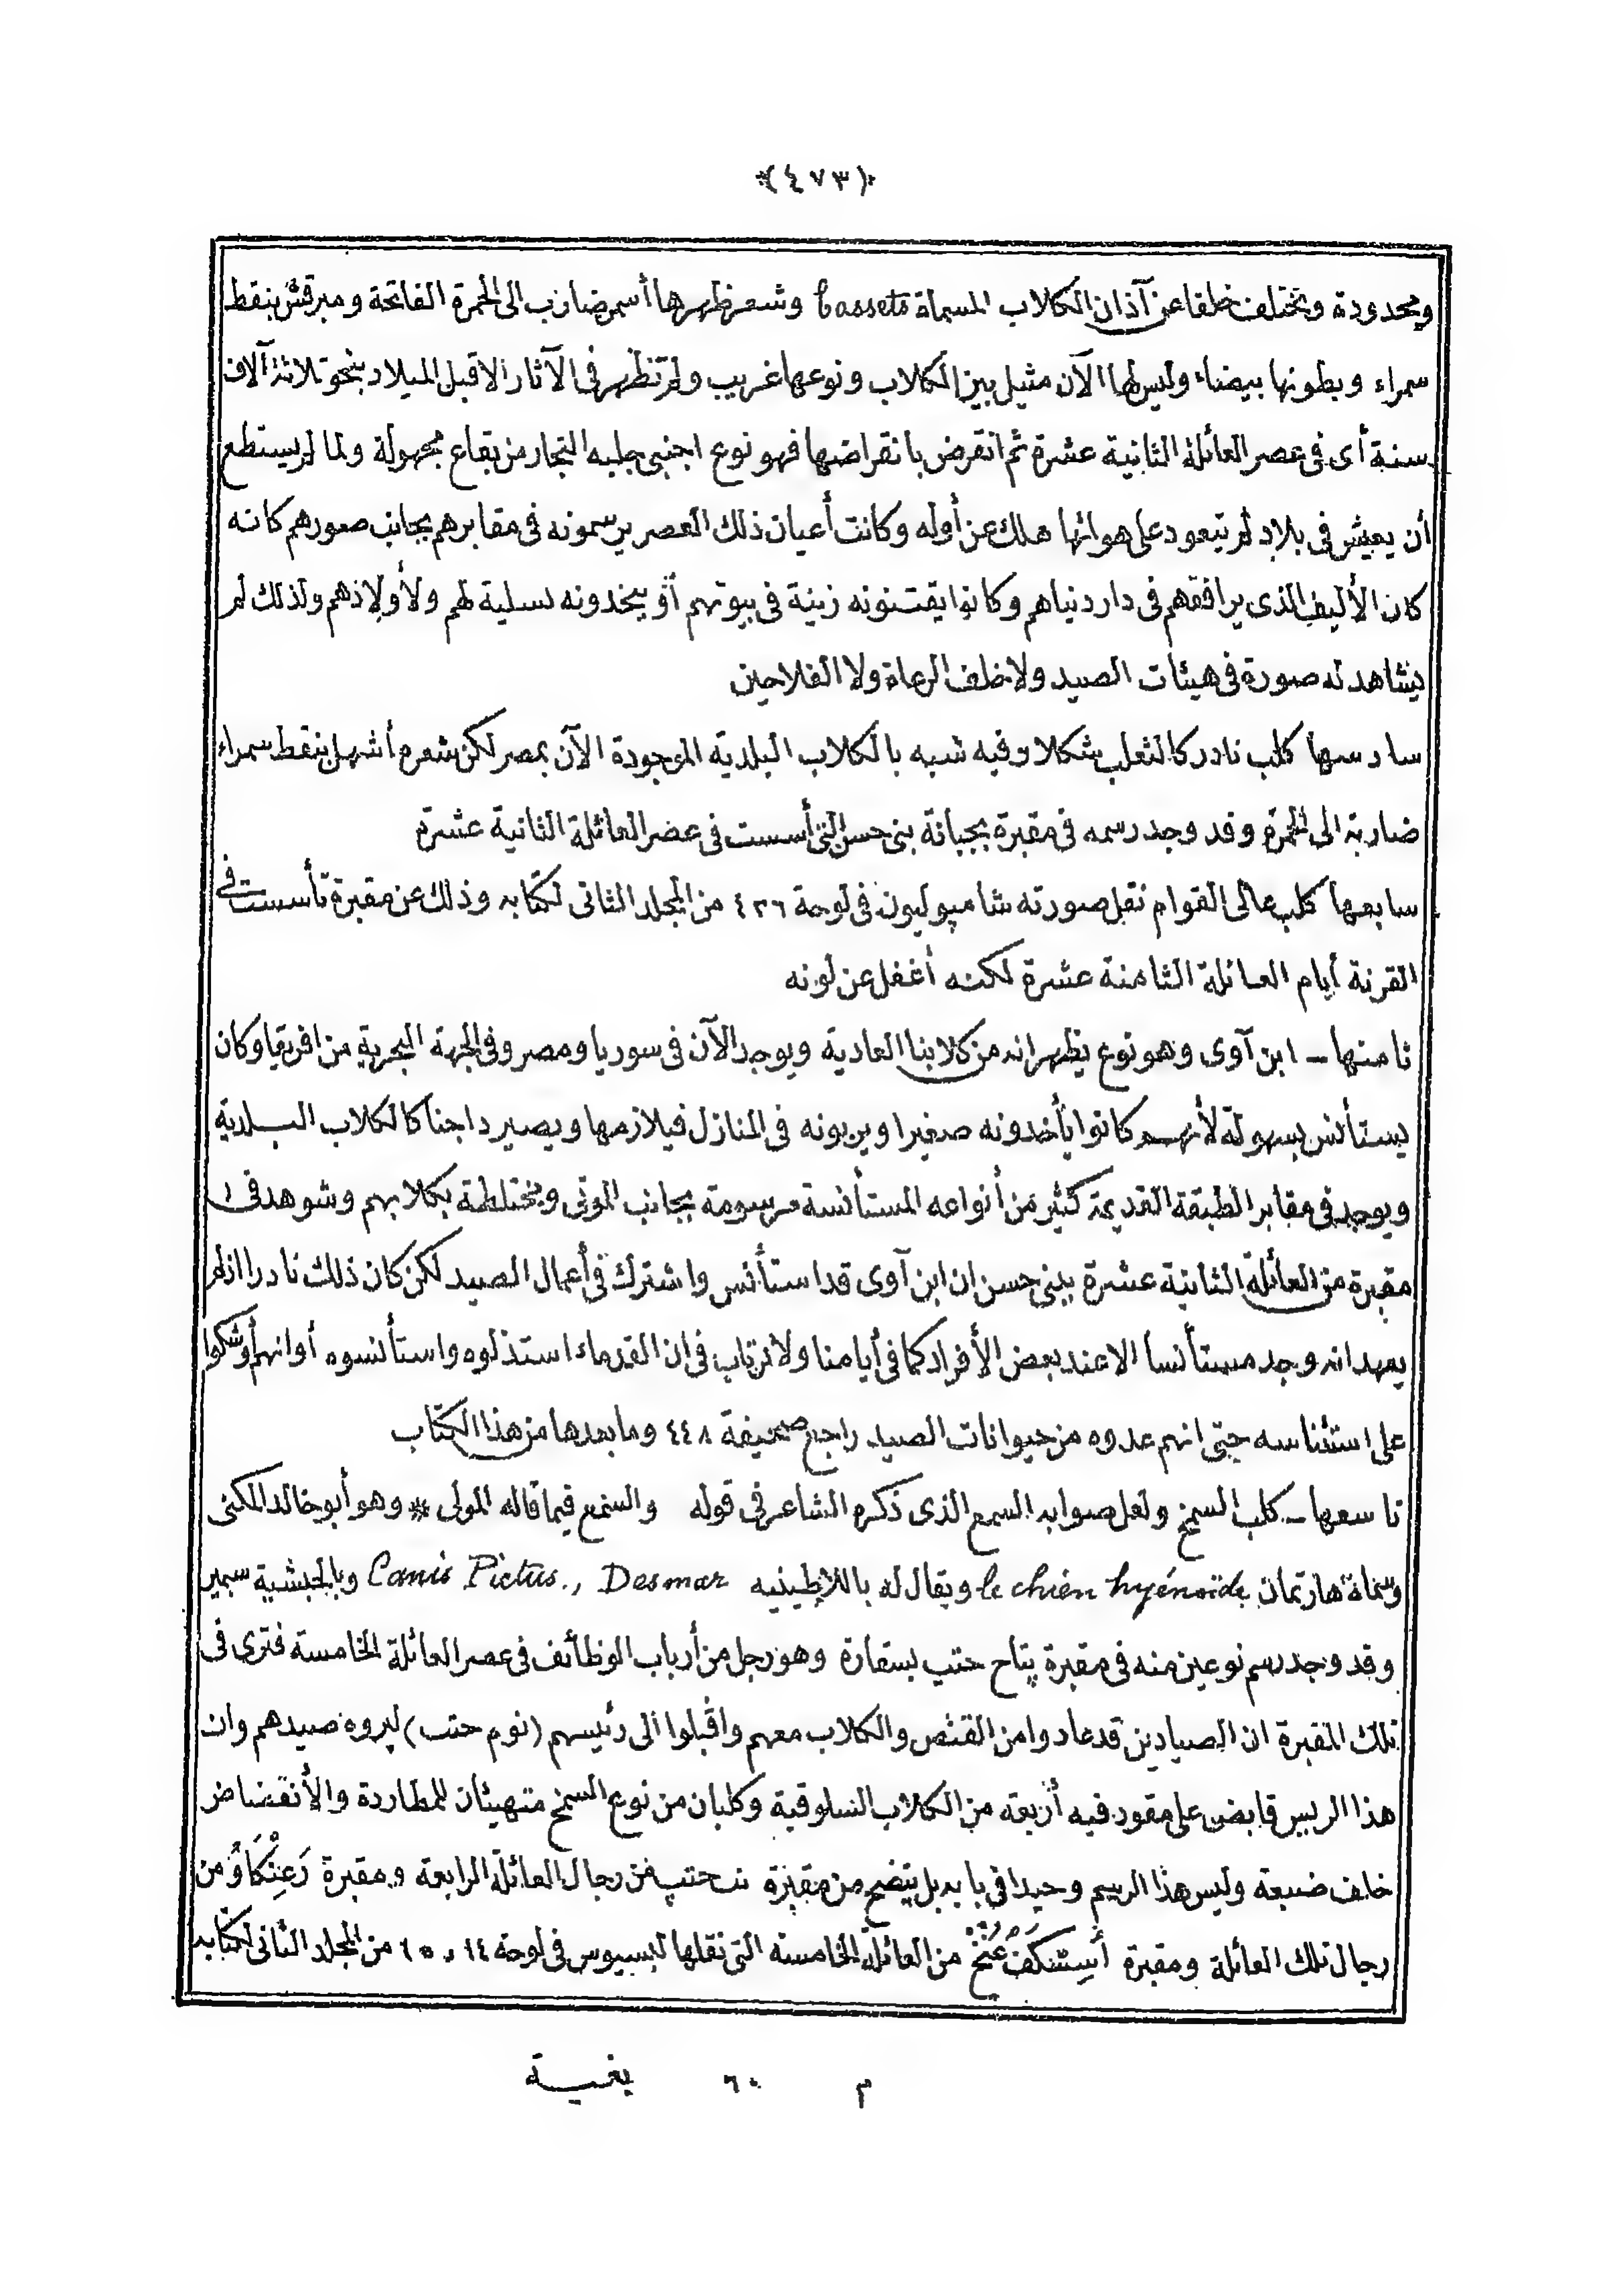 ﴿٤٧٣﴾
ومحدودة وتختلف خلقا عن آذان الكلاب المسماة bassets وشعر ظهرها أسمر ضارب الى الحمرة الفاتحة ومبرقش بنقط
سمراء وبطونها بيضاء وليس لها الآن مثيل بين الكلاب ونوعها غريب ولم تظهر فى الآثار الا قبل الميلاد بنحو ثلاثة آلاف
سنة أى فى عصر العائلة الثانية عشرة ثم انقرض بانقراضها فهو نوع اجنبى جلبه التجار من بقاع مجهولة ولما لم يستطع
أن يعيش فى بلاد لم يتعود على هوائها هلك عن أوله وكانت أعيان ذلك العصر يرسمونه فى مقابرهم بجانب صورهم كانه
كان الأليف الذى يرافقهم فى دار دنياهم وكانوا يقتنونه زينة فى بيوتهم أو يتخذونه تسلية لهم ولأولادهم ولذلك لم
يشاهد له صورة فى هيئات الصيد ولا خلف الرعاة ولا الفلاحين
سادسها كلب نادر كالثعلب شكلا وفيه شبه بالكلاب البلدية الموجودة الآن بمصر لكن شعره أشهل بنقط سمراء
ضاربة الى الحمرة وقد وجد رسمه فى مقبرة بجبانة بنى حسن التى أسست فى عصر العائلة الثانية عشرة
سابعها كلب عالى القوام نقل صورته شامپوليون فى لوحة ٤٢٦ من المجلد الثانى لكتابه وذلك عن مقبرة تأسست فى
القرنة أيام العائلة الثامنة عشرة لكنه أغفل عن لونه
ثامنها ــ ابن آوى وهو نوع يظهر انه من كلابنا العادية ويوجد الآن فى سوريا ومصر وفى الجهة البحرية من افريقيا وكان
يستأنس بسهولة لأنهم كانوا يأخذونه صغيرا ويربونه فى المنازل فيلازمها ويصير داجنا كالكلاب البلدية
ويوجد فى مقابر الطبقة القديمة كثير من أنواعه المستأنسة مرسومة بجانب الموتى ومختلطة بكلابهم وشوهد فى
مقبرة من العائلة الثانية عشرة ببنى حسن ان ابن آوى قد استأنس واشترك فى أعمال الصيد لكن كان ذلك نادرا اذ لم
يعهد انه وجد مستأنسا الا عند بعض الأفراد كما فى أيامنا ولا نرتاب فى ان القدماء استذلوه واستأنسوه أو انهم أوشكوا
على استئناسه حتى انهم عدوه من حيوانات الصيد راجع صحيفة ٤٤٨ وما بعدها من هذا الكتاب
تاسعها ــ كلب السمخ ولعل صوابه السمع الذى ذكره الشاعر فى قوله والسمع فيما قاله المولى * وهو أبو خالد المكنى
وسماه هارتمان le chien hyénoïde ويقال له باللاطينيه Canis Pictus., Desmar وبالحبشية سمير
وقد وجد رسم نوعين منه فى مقبرة پتاح حتب بسقارة وهو رجل من أرباب الوظائف فى عصر العائلة الخامسة فترى فى
تلك المقبرة ان الصيادين قد عادوا من القنص والكلاب معهم واقبلوا الى رئيسهم (نوم حتب) ليروه صيدهم وان
هذا الريس قابض على مقود فيه أربعة من الكلاب السلوقية وكلبان من نوع السمخ متهيئان للمطاردة والأنقضاض
خلف ضبعة وليس هذا الرسم وحيدا فى بابه بل يتضح من مقبرة نب حتب من رجال العائلة الرابعة ومقبرة رَعِنْكَاوُ من
رجال تلك العائلة ومقبرة من العائلة الخامسة التى نقلها لبسيوس فى لوحة ١٤ و ١٥ من المجلد الثانى لكتابه
م ٦٠ بغيـــة